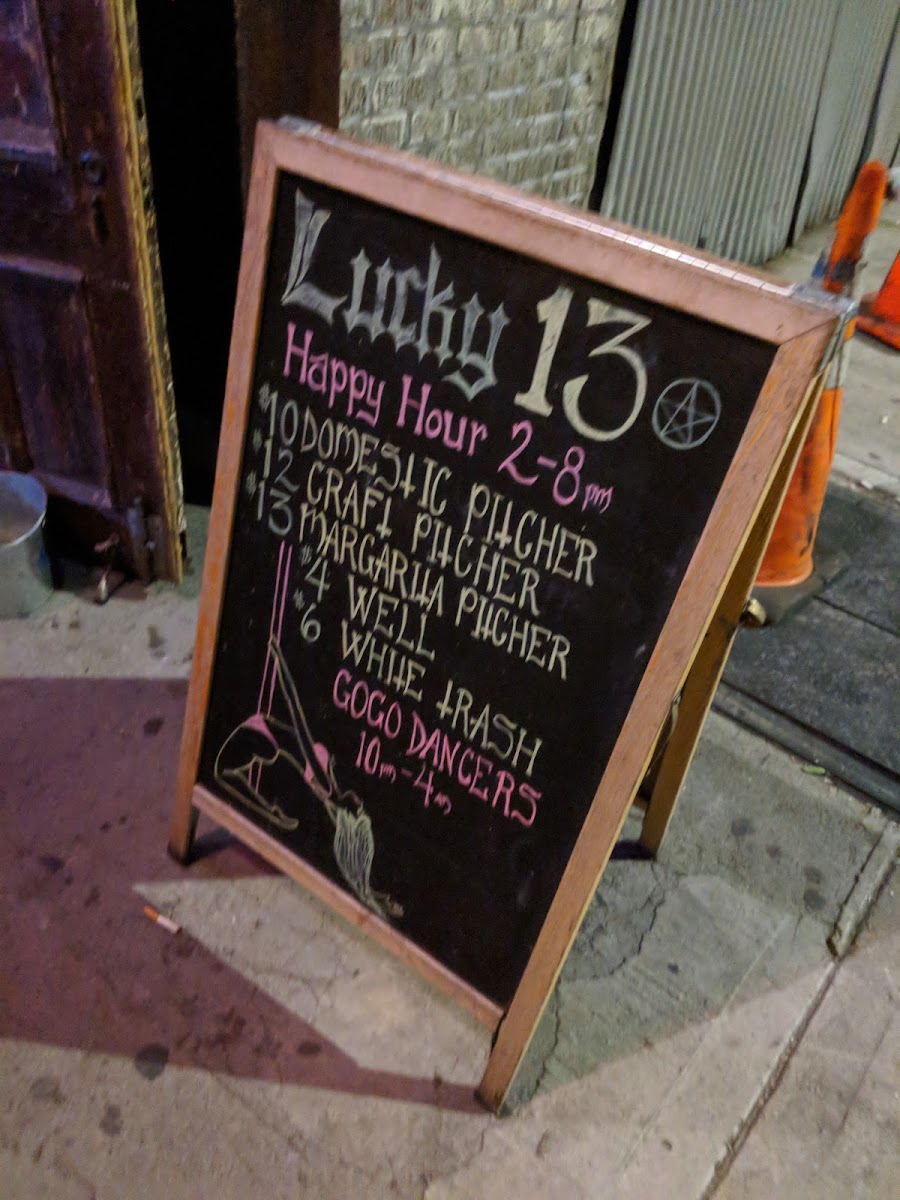 Lucky 13
Happy Hour 2-8 pm
$10 DOMESTIC PITCHER
$12 CRAFT PITCHER
$13 MARGARITA PITCHER
$4 WELL
$6 WHITE TRASH
GOGO DANCERS
10pm-4am